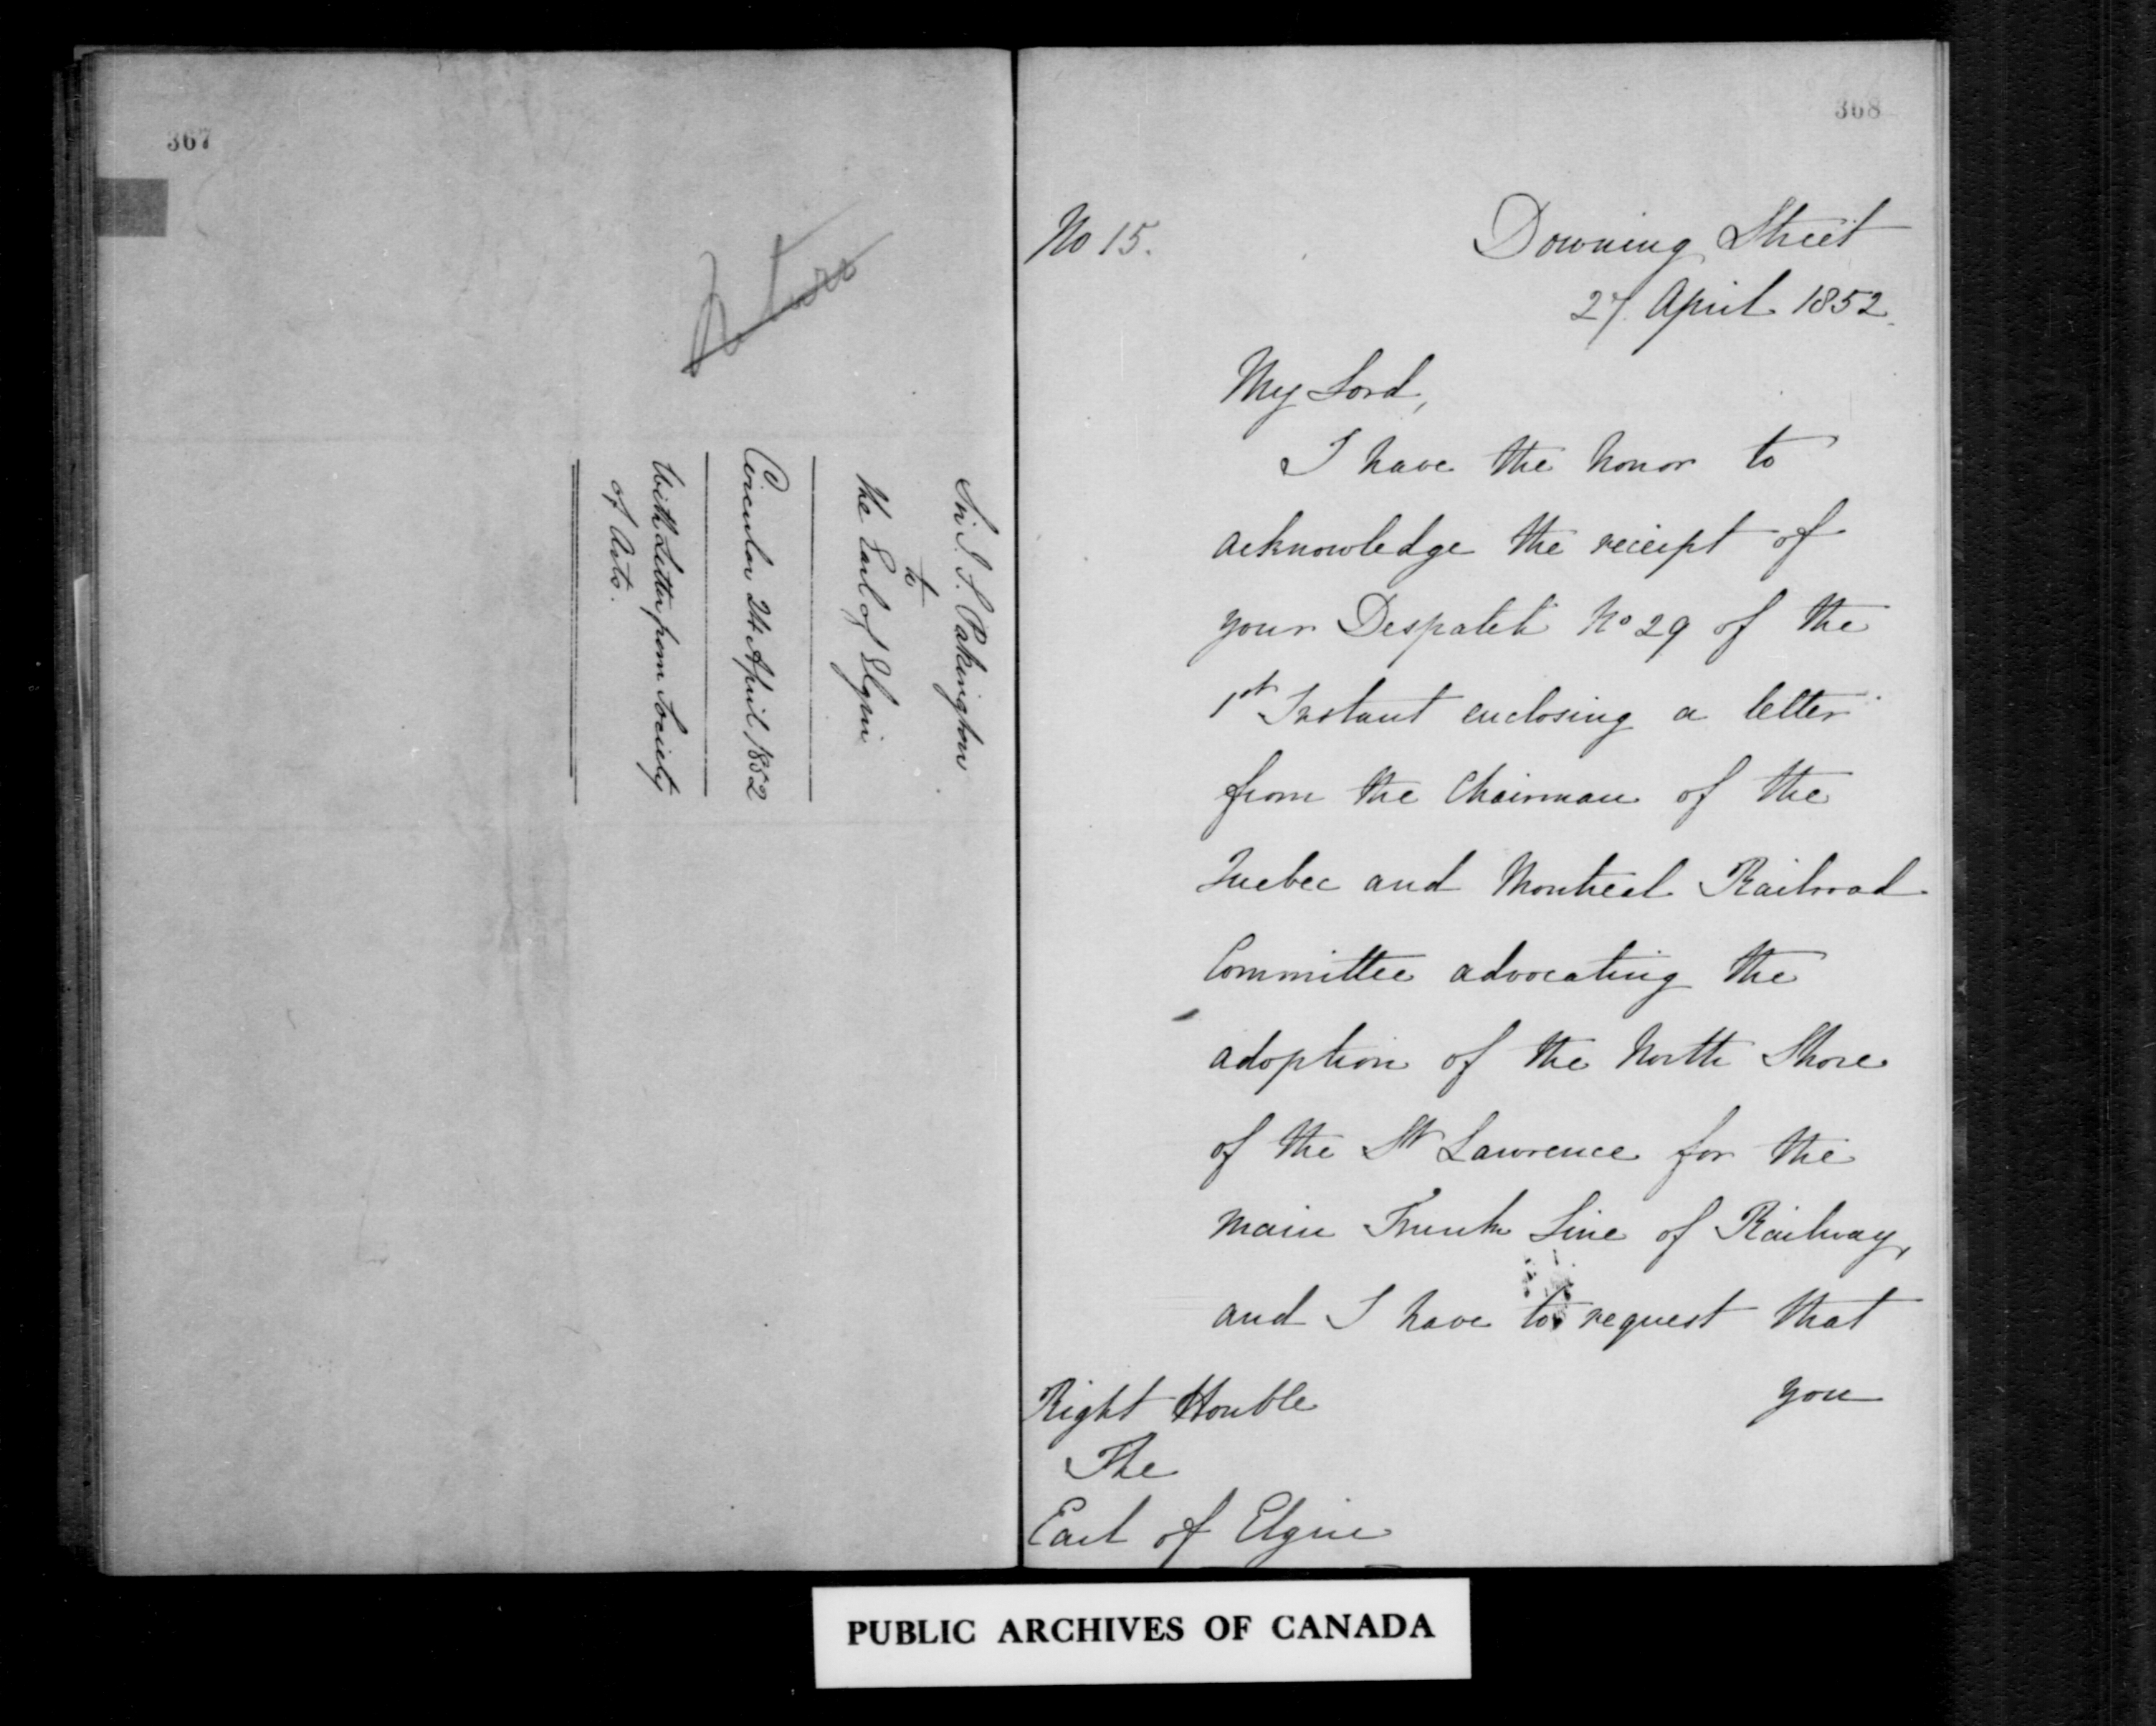 367
Sir J. S. Pakington
to
The Earl of Elgin
Circular 24 April 1852
With Letter from Society
of Arts.
368
No 15.
Downing Street
27 April 1852.
My Lord,
I have the honor to
acknowledge the receipt of
your Despatch No 29 of the
1st Instant enclosing a letter
from the Chairman of the
Quebec and Montreal Railroad
Committee advocating the
adoption of the North Shore
of the St Lawrence for the
main Trunk Line of Railway,
and I have to request that
you
Right Honble
The
Earl of Elgin
PUBLIC ARCHIVES OF CANADA